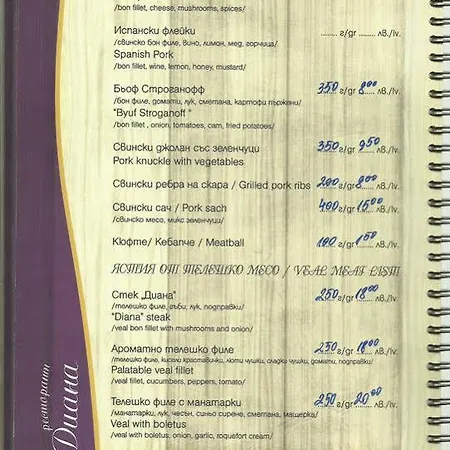 /bon fillet, cheese, mushrooms, spices/
Испански флейки ........ г/gr ........ лв./lv.
/свинско бон филе, вино, лимон, мед, горчица/
Spanish Pork
/bon fillet, wine, lemon, honey, mustard/
Бьоф Строганофф 350 г/gr 8 00 лв./lv.
/бон филе, домати, лук, сметана, картофи пържени/
"Byuf Stroganoff "
/bon fillet , onion, tomatoes, cam, fried potatoes/
Свински джолан със зеленчуци 350 г/gr 9 50 лв./lv.
Pork knuckle with vegetables
Свински ребра на скара / Grilled pork ribs 200 г/gr 8 00 лв./lv.
Свински сач / Pork sach 400 г/gr 15 00 лв./lv.
/свинско месо, микс зеленчуци/
Кюфте/ Кебапче / Meatball 100 г/gr 1 50 лв./lv.
ЯСТИЯ ОТ ТЕЛЕШКО МЕСО / VEAL MEAT LIST
Стек „Диана" 250 г/gr 18 00 лв./lv.
/телешко филе, гъби, лук, подправки/
"Diana" steak
/veal bon fillet with mushrooms and onion/
Ароматно телешко филе 250 г/gr 18 00 лв./lv.
/телешко филе, кисели краставички, люти чушки, сладки чушки, домати, подправки/
Palatable veal fillet
/veal fillet, cucumbers, peppers, tomato/
Телешко филе с манатарки 250 г/gr 20 00 лв./lv.
/манатарки, лук, чесън, синьо сирене, сметана, мащерка/
Veal with boletus
/veal with boletus, onion, garlic, roquefort cream/
ресторант
Диана